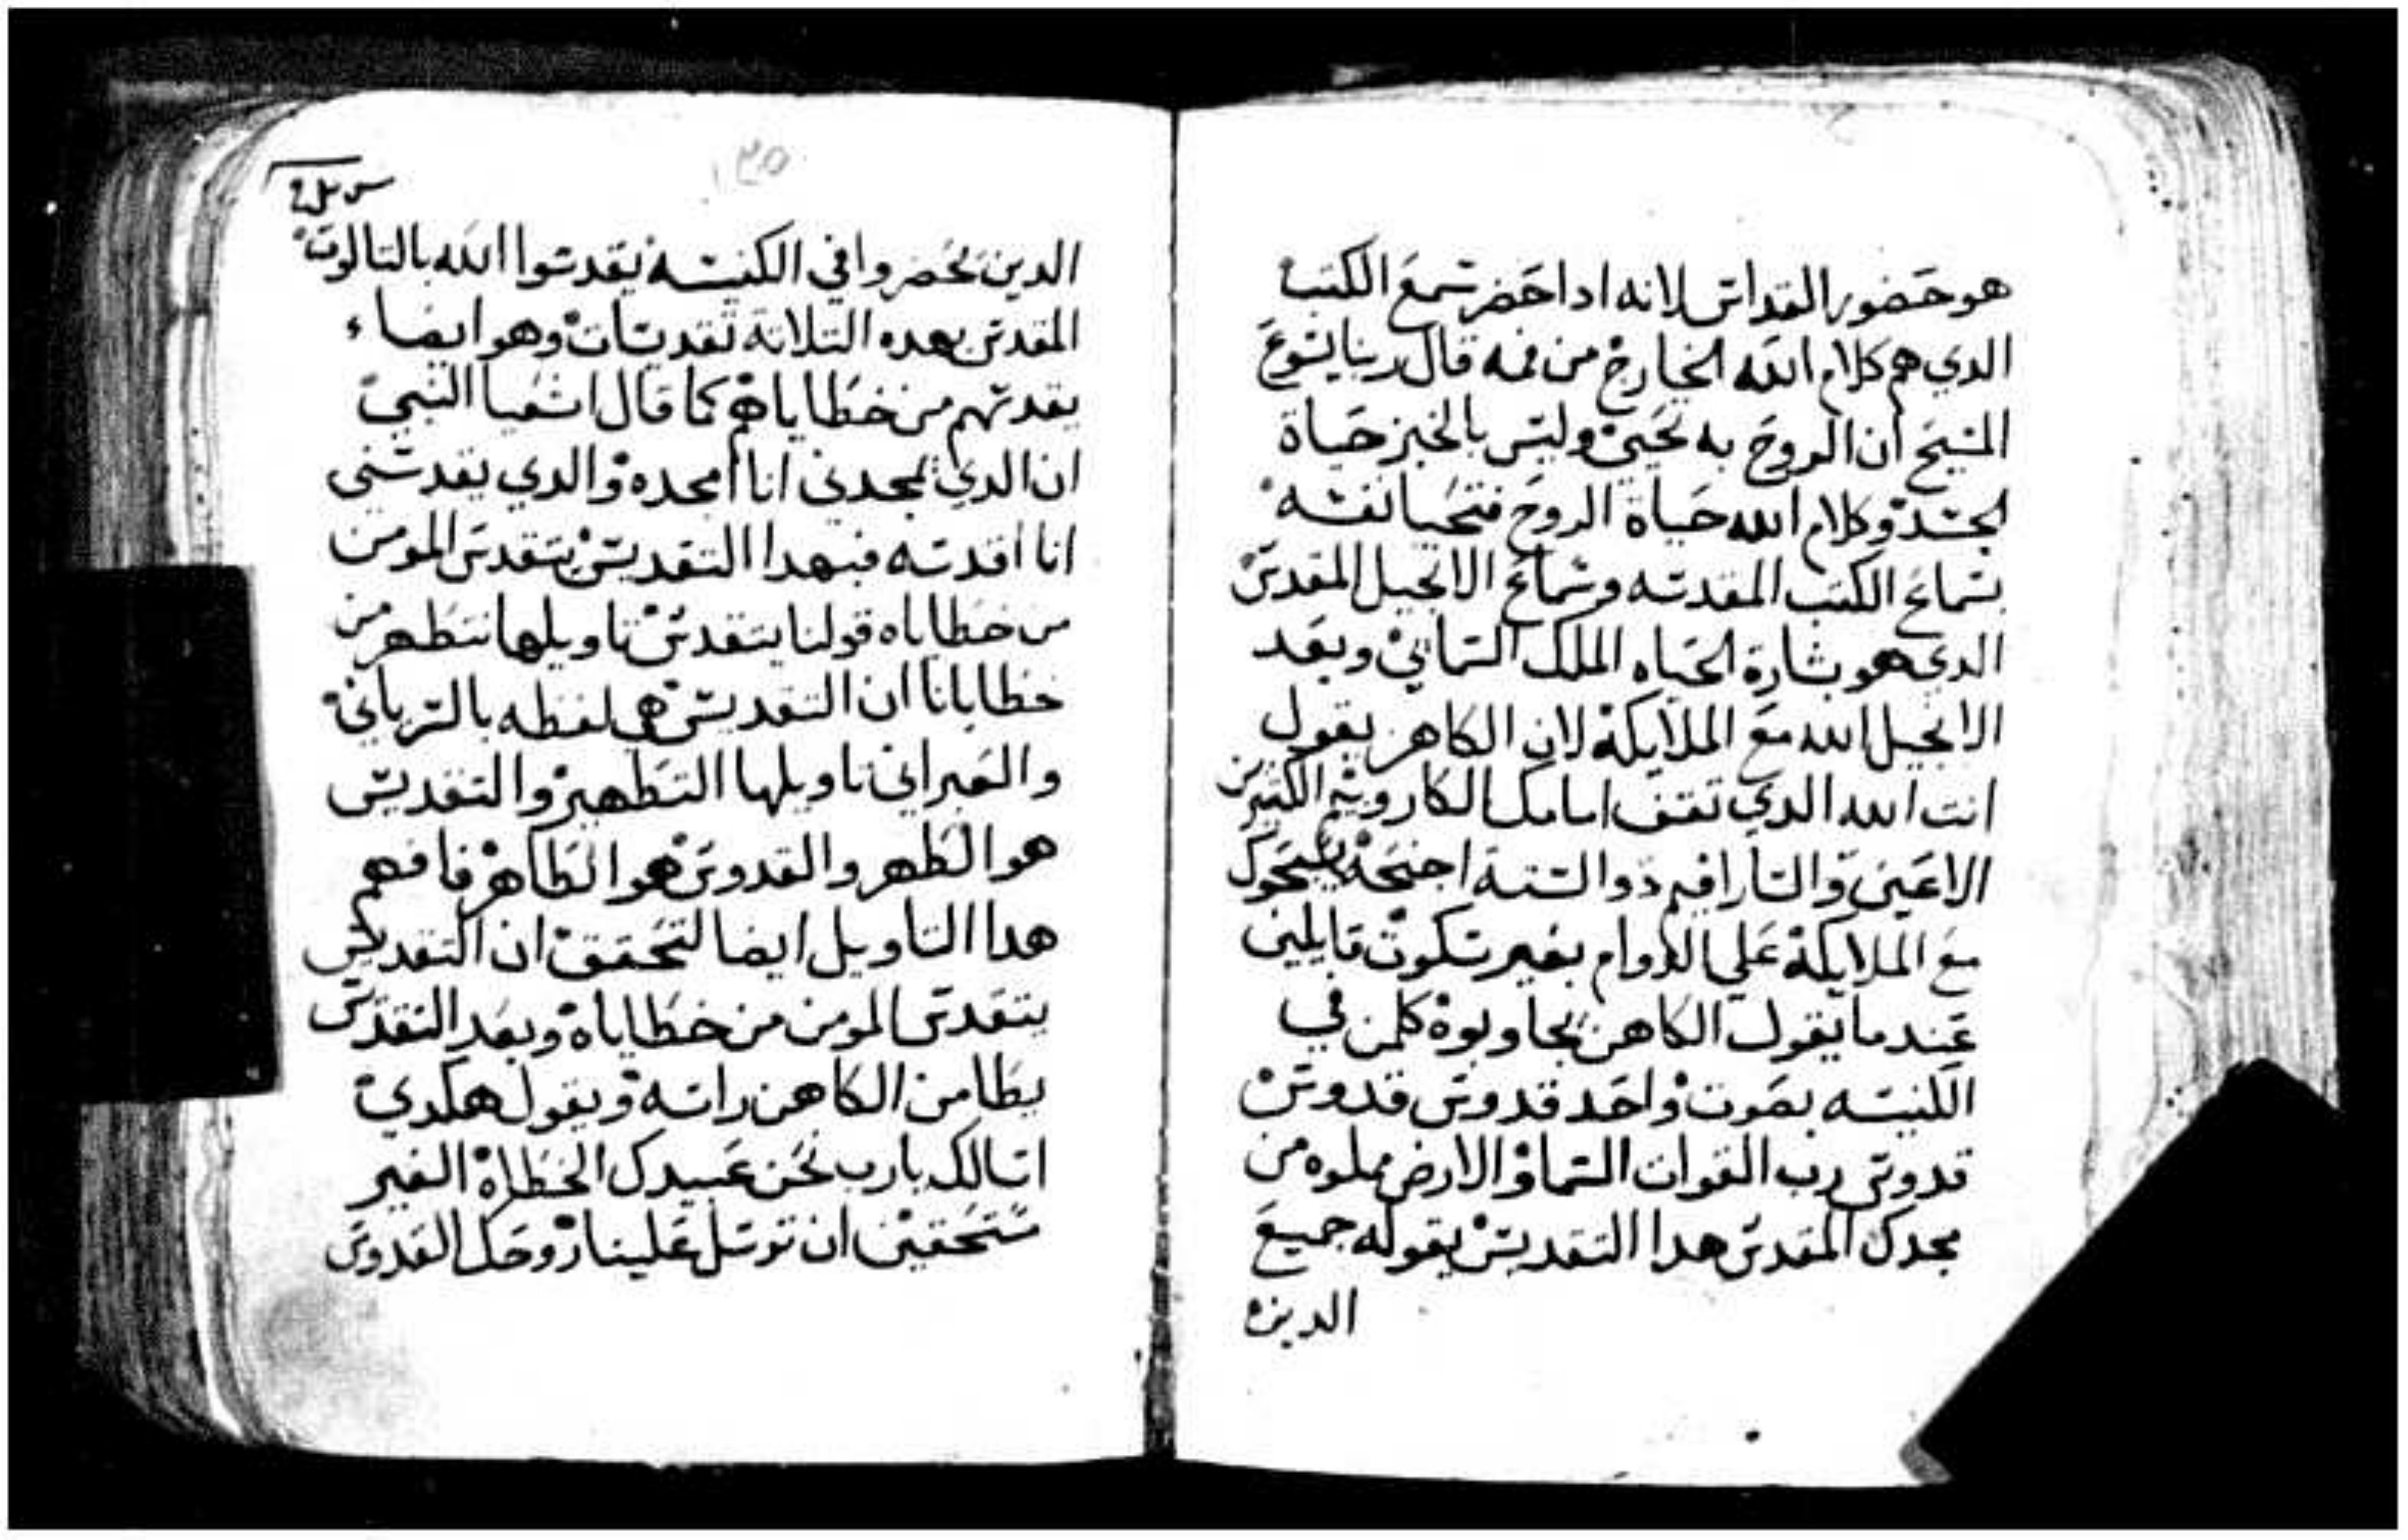 هو حضور القداس لانه ادا حضر سمع الكتب
الدي هم كلام الله الخارج من فمه قال ربنا يسوع
المسيح ان الروح به تحيي وليس بالخبز حياة
الجسد وكلام الله حياة الروح فتحيا نفسه
بسماع الكتب المقدسه وسماع الانجيل المقدس
الدي هو بشارة الحياه الملك السماني وبعد
الانجيل الله مع الملايكة لان الكاهن يقول
انت الله الدي تقف امامك الكاروبيم الكتيرين
الاعين والسارافيم ذوا الستة اجنحة
مع الملايكة علي الدوام بغير سكوت قايلين
عند ما يقول الكاهن يجاوبوة كلمن في
الكنيسه بصوت واحد قدوس قدوس
قدوس رب القوات السما والارض مملوه من
مجدك المقدس هدا التقديس يقوله جميع
الدين
١٢٥
الدين يحضروا في الكنيسه يقدسوا الله بالتالوت
المقدس بهده التلاتة تقديسات وهو ايضا
يقدسهم من خطاياهم كما قال اشعيا النبي
ان الدي يمجدني انا امجده والدي يقدسني
انا اقدسه فبهدا التقديس يتقدس المومن
من خطاياه قولنا يتقدس تاويلها نتطهر من
خطايانا ان التقديس هي لفظه بالسرياني
والعبراني تاويلها التطهير والتقديس
هو الطهر والقدوس هو الطاهر فافهم
هدا التاويل ايضا لتحقق ان التقديس
يتقدس المومن من خطاياة وبعد التقديس
يطامن الكاهن راسه ويقول هكدي
اسالك يارب نحن عبيدك الخطاة الغير
مستحقين ان ترسل علينا روحك القدوس